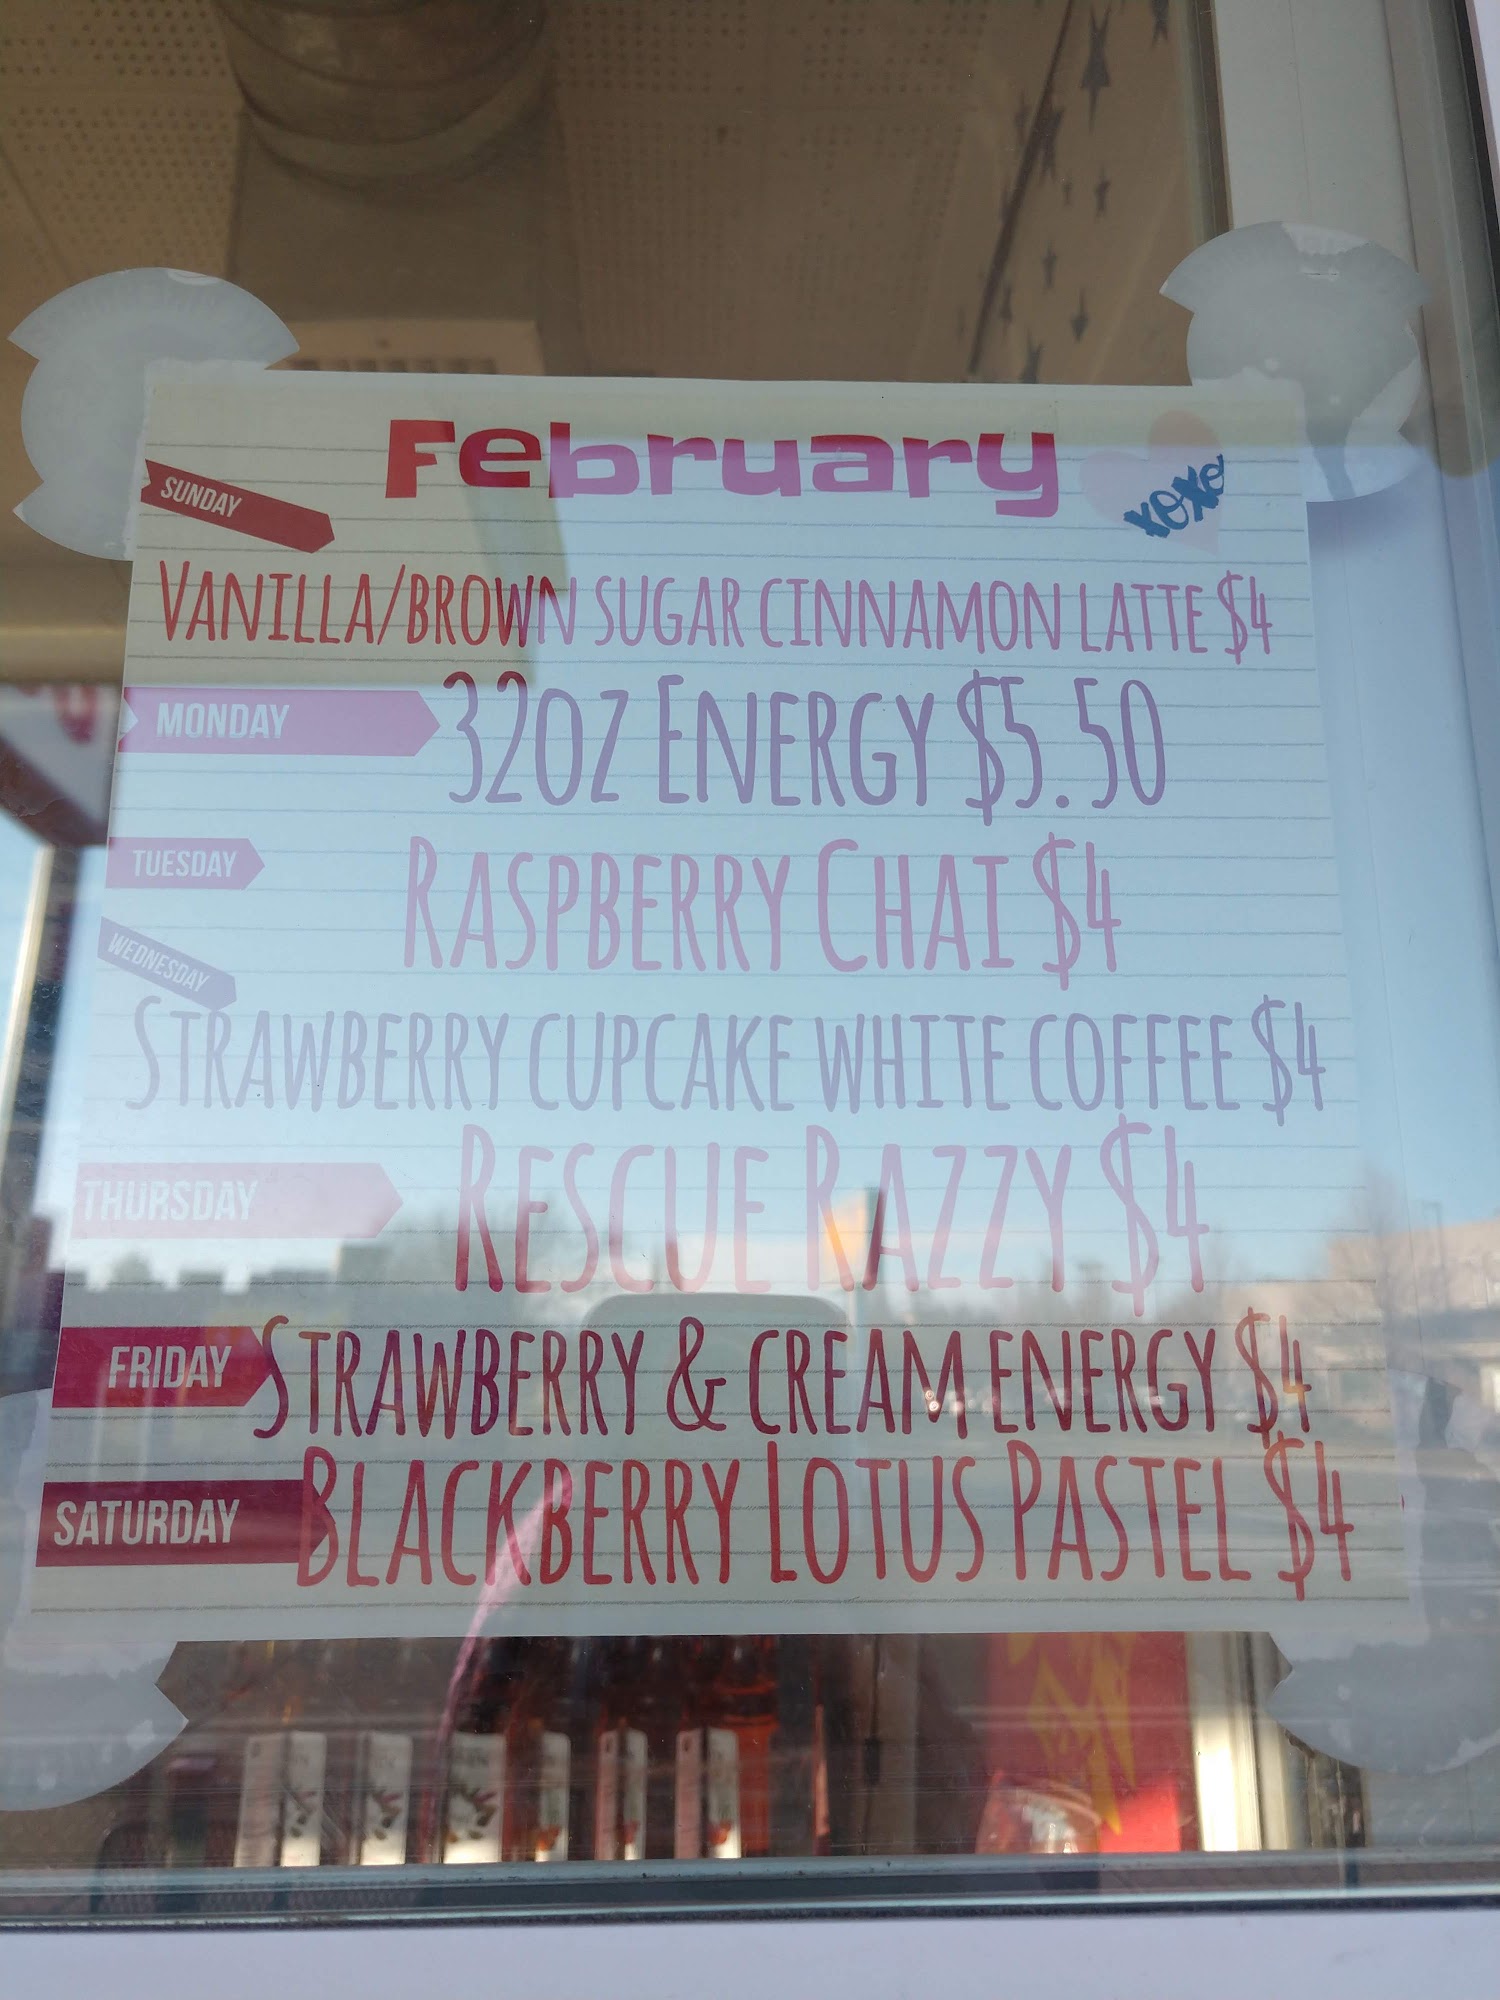 February
xoxo
SUNDAY
VANILLA/BROWN SUGAR CINNAMON LATTE $4
MONDAY 32OZ ENERGY $5.50
TUESDAY RASPBERRY CHAI $4
WEDNESDAY
STRAWBERRY CUPCAKE WHITE COFFEE $4
THURSDAY RESCUE RAZZY $4
FRIDAY STRAWBERRY & CREAM ENERGY $4
SATURDAY BLACKBERRY LOTUS PASTEL $4